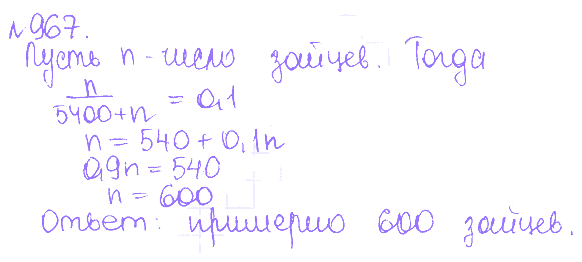 №967.
Пусть n - число зайцев. Тогда
n / (5400+n) = 0,1
n = 540 + 0,1n
0,9n = 540
n = 600
Ответ: примерно 600 зайцев.